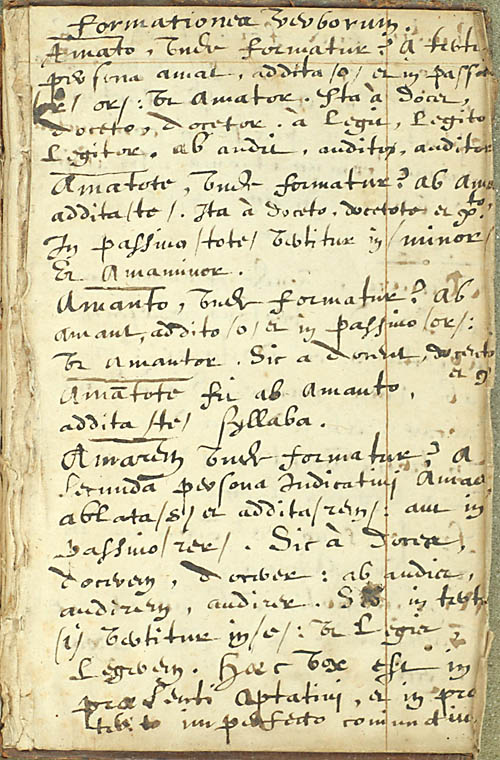 Formationes verborum.
Amato, unde formatur? A tertia
persona amat, addita /o/ et in passivo
/or/: ut Amator. Ita à docet,
doceto, docetor. à Legit, Legito
Legitor. ab audit, audito, auditor
Amatote, unde formatur? ab Amato
addita /te/. Ita à doceto, docetote et
In passivo /tote/ vertitur in /minor/
Et Amaminor.
Amanto, unde formatur? ab
amant, addito /o/ et in passivo /or/:
ut amantor. Sic a docent, docento
Amãtote fit ab Amanto,
addita /te/ syllaba.
Amarem unde formatur? A
secunda persona Indicativi Amas
ablata /s/ et addita /rem/: aut in
passivo /rer/. Sic à doces,
docerem, docerer: ab audis,
audirem, audirer. in tertia
/i/ vertitur in /e/: ut Legis
Legerem. Hæc vox est in
præsenti Optativi, et in præ
imperfecto